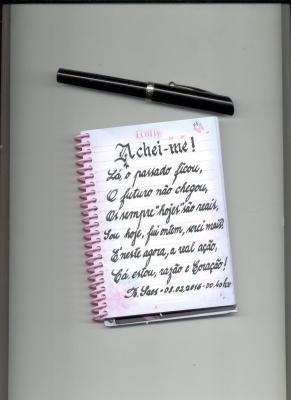 Achei-me!
Lá, o passado ficou,
O futuro não chegou,
Os sempre "hojes" são reais,
Sou hoje, fui ontem, serei mais?!
E neste agora, a real ação,
Cá estou, razão e Coração!
08.02.2016 - 00:40hs